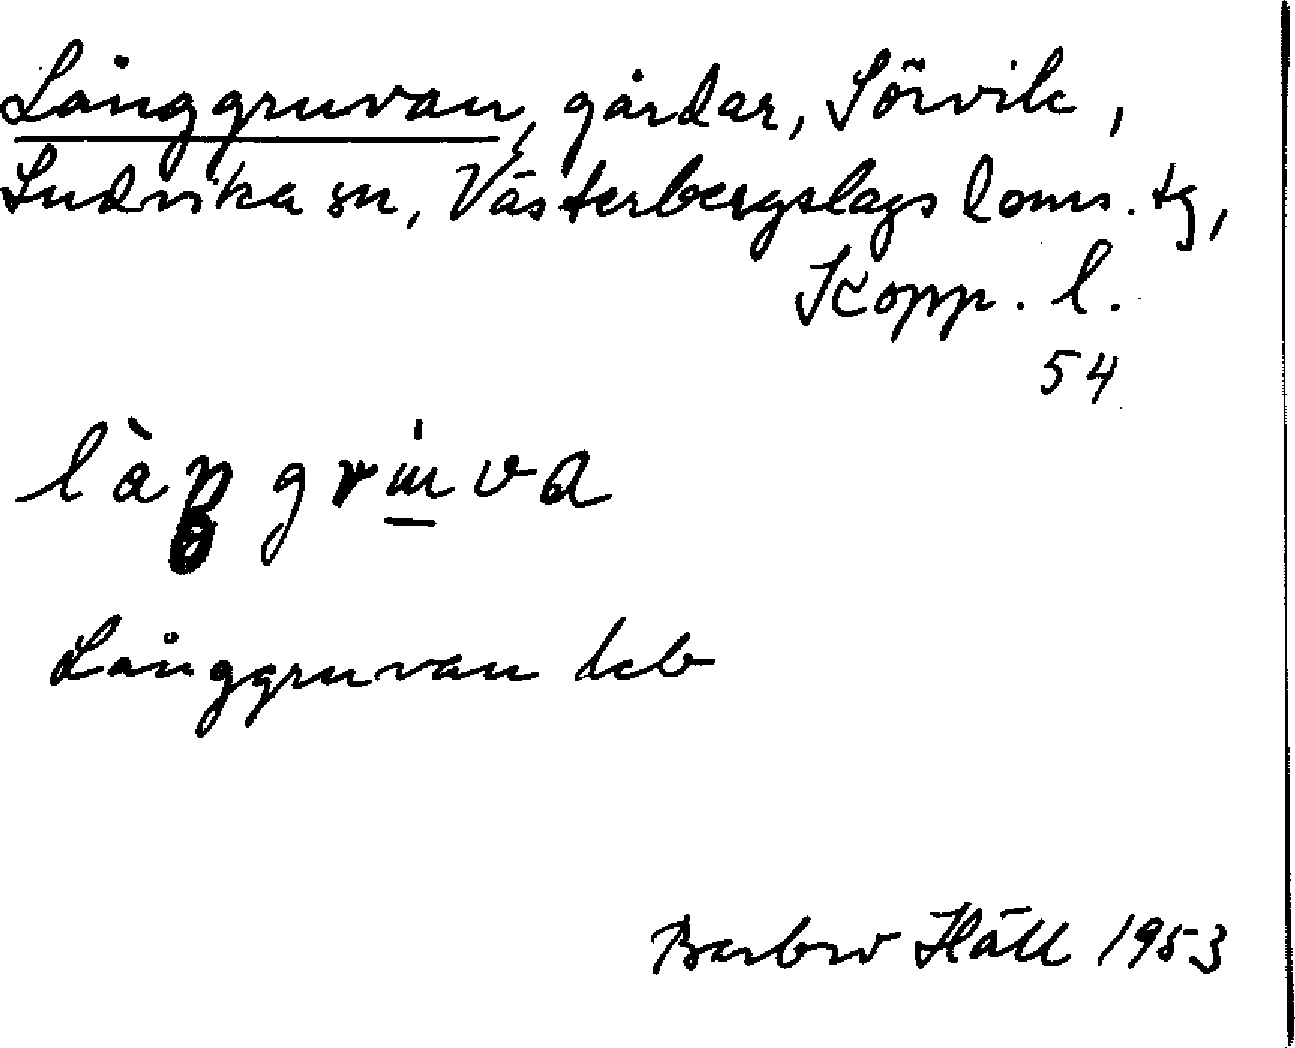 Långgruvan, gårdar, Sörvik,
Ludvika sn, Västerbergslags doms. tg,
Kopp. l.
54
Långgruvan deb
Barbro Häll 1953